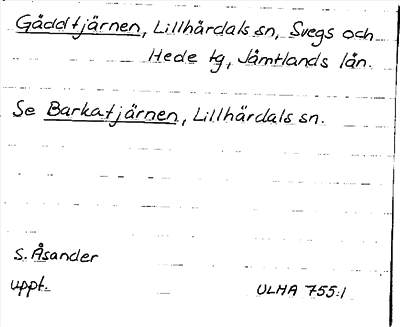 Gåddtjärnen, Lillhärdals sn, Svegs och
Hede tg, Jämtlands län.
Se Barkatjärnen, Lillhärdals sn.
S. Åsander
uppt.
ULMA 755:1